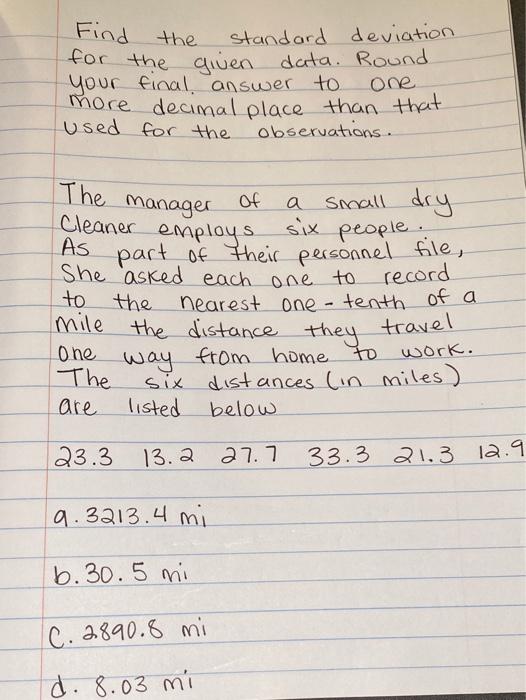 Find the standard deviation
for the given data. Round
your final answer to one
more decimal place than that
used for the observations.
The manager of a small dry
Cleaner employs six people.
As part of their personnel file,
She asked each one to record
to the nearest one-tenth of a
mile the distance they travel
one way from home to work.
The six distances (in miles)
are listed below
23.3 13.2 27.7 33.3 21.3 12.9
a. 3213.4 mi
b. 30.5 mi
C. 2890.8 mi
d. 8.03 mi